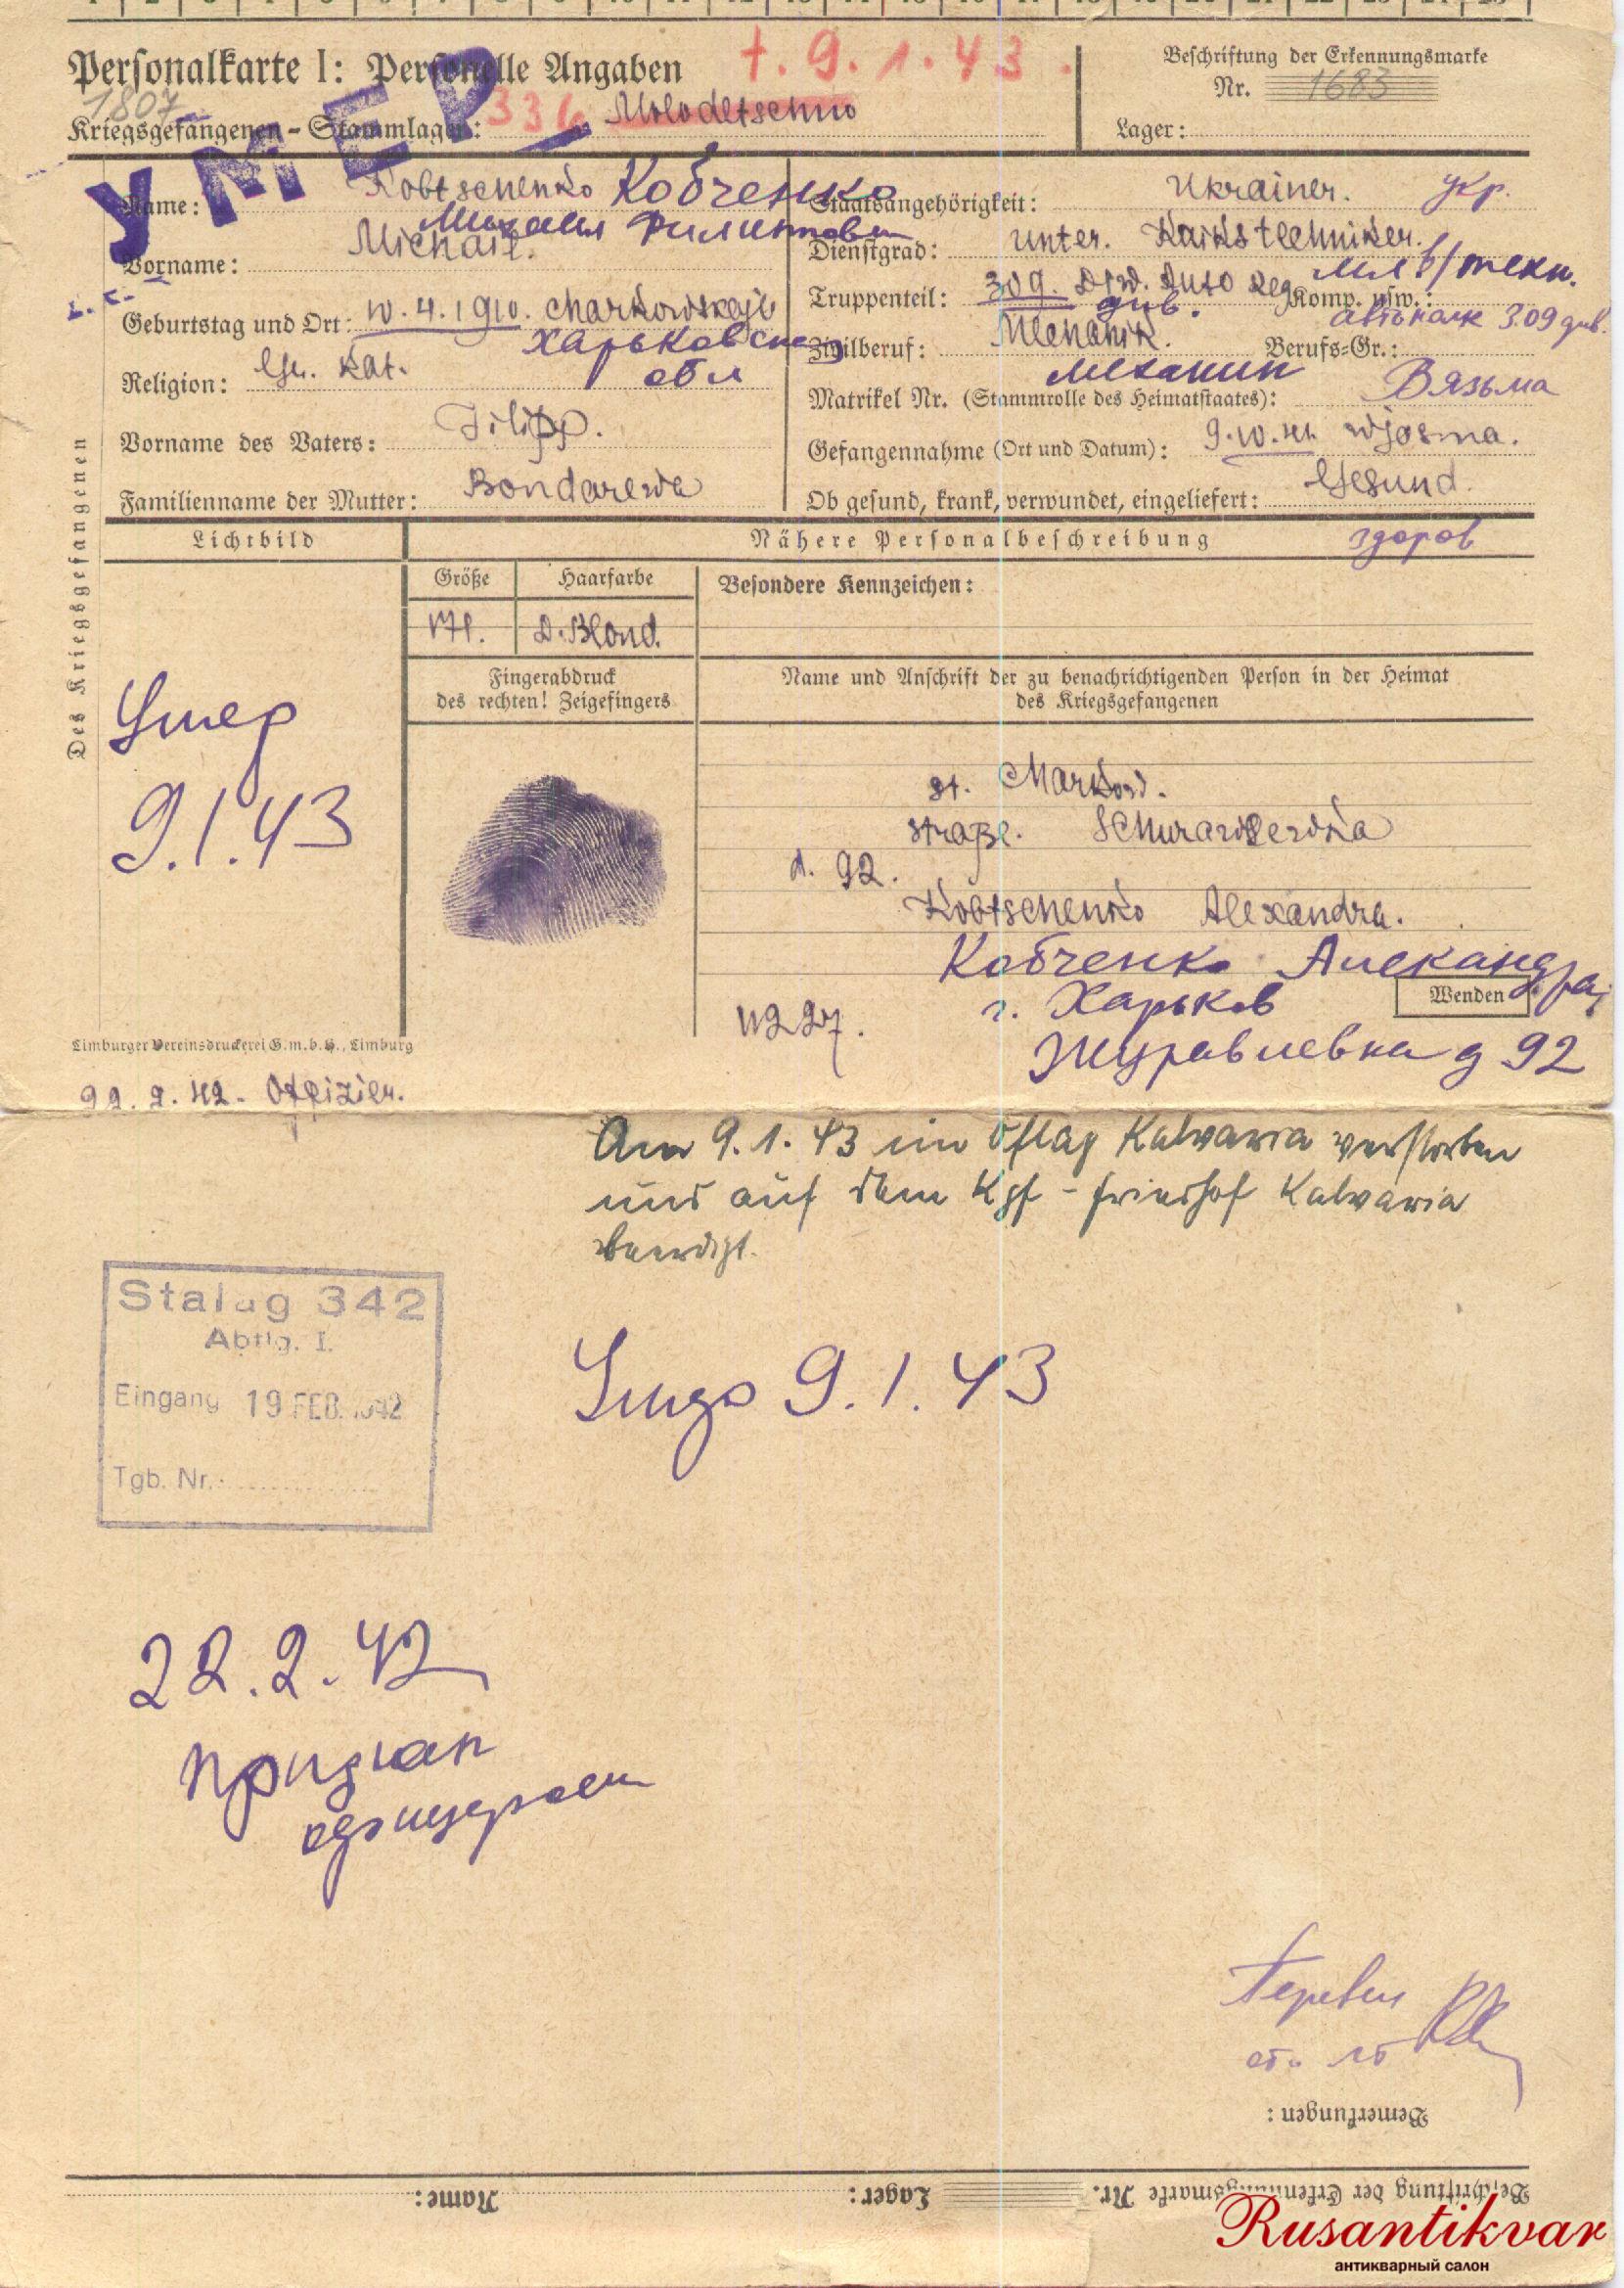 Personalkarte I: Personelle Angaben
† . 9 . 1 . 43 .
Beschriftung der Erkennungsmarke
Nr. 1683
1807
Kriegsgefangenen-Stammlager: 336 Molodetschno
Lager:
УМЕР
Des Kriegsgefangenen
Name: Kobtschenko Кобченко
Михаил
Vorname: Michail.
Geburtstag und Ort: 10. 4. 1910. Charkowskaja
Харьковская
обл
Religion: Gr. Kat.
Vorname des Vaters: Filipp.
Familienname der Mutter: Bondarewa
Staatsangehörigkeit: Ukrainer. укр.
Dienstgrad: Unter. techniker.
мл в/техн.
Truppenteil: 309. Auto Reg Komp. usw.:
див. автополк 309 див.
Zivilberuf: Mechanik. Berufs-Gr.:
механик
Matrikel Nr. (Stammrolle des Heimatstaates):
Вязьма
Gefangennahme (Ort und Datum): 9.10.41. Wjasma.
Ob gesund, krank, verwundet, eingeliefert: Gesund.
здоров
Lichtbild
Nähere Personalbeschreibung
Größe
Haarfarbe
Besondere Kennzeichen:
171.
D.Blond.
Fingerabdruck
des rechten! Zeigefingers
Name und Anschrift der zu benachrichtigenden Person in der Heimat
des Kriegsgefangenen
Умер
9.1.43
st. Charkow.
straße. Schurawlewka
d. 92.
Kobtschenko Alexandra.
Кобченко Александра,
г. Харьков
Wenden
Журавлевка д 92
Limburger Vereinsdruckerei G.m.b.H., Limburg
22. 2. 42 - Offizier.
Am 9.1.43 im Oflag Kalvaria verstorben
und auf dem Kgf-friedhof Kalvaria
beerdigt.
Stalag 342
Abtlg. I.
Eingang 19 FEB. 1942
Tgb. Nr.
Умер 9.1.43
22.2.42
признан
офицером
Перевел
Bemerkungen:
Beschriftung der Erkennungsmarke Nr.
Lager:
Name:
Rusantikvar
антикварный салон